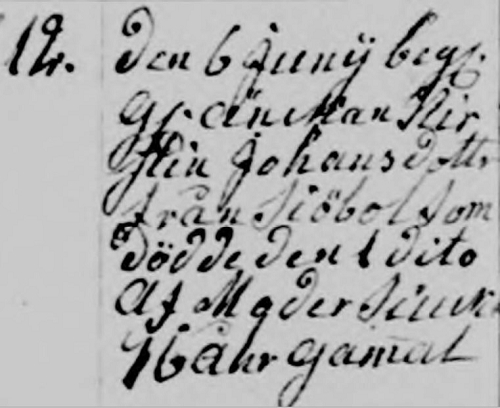 12. den 6 Junÿ begr
gr. änckian Kir
stin Johansdottr
från Siöbol som
dödde den 1 dito
af Moder Siuk
76 åhr gamal